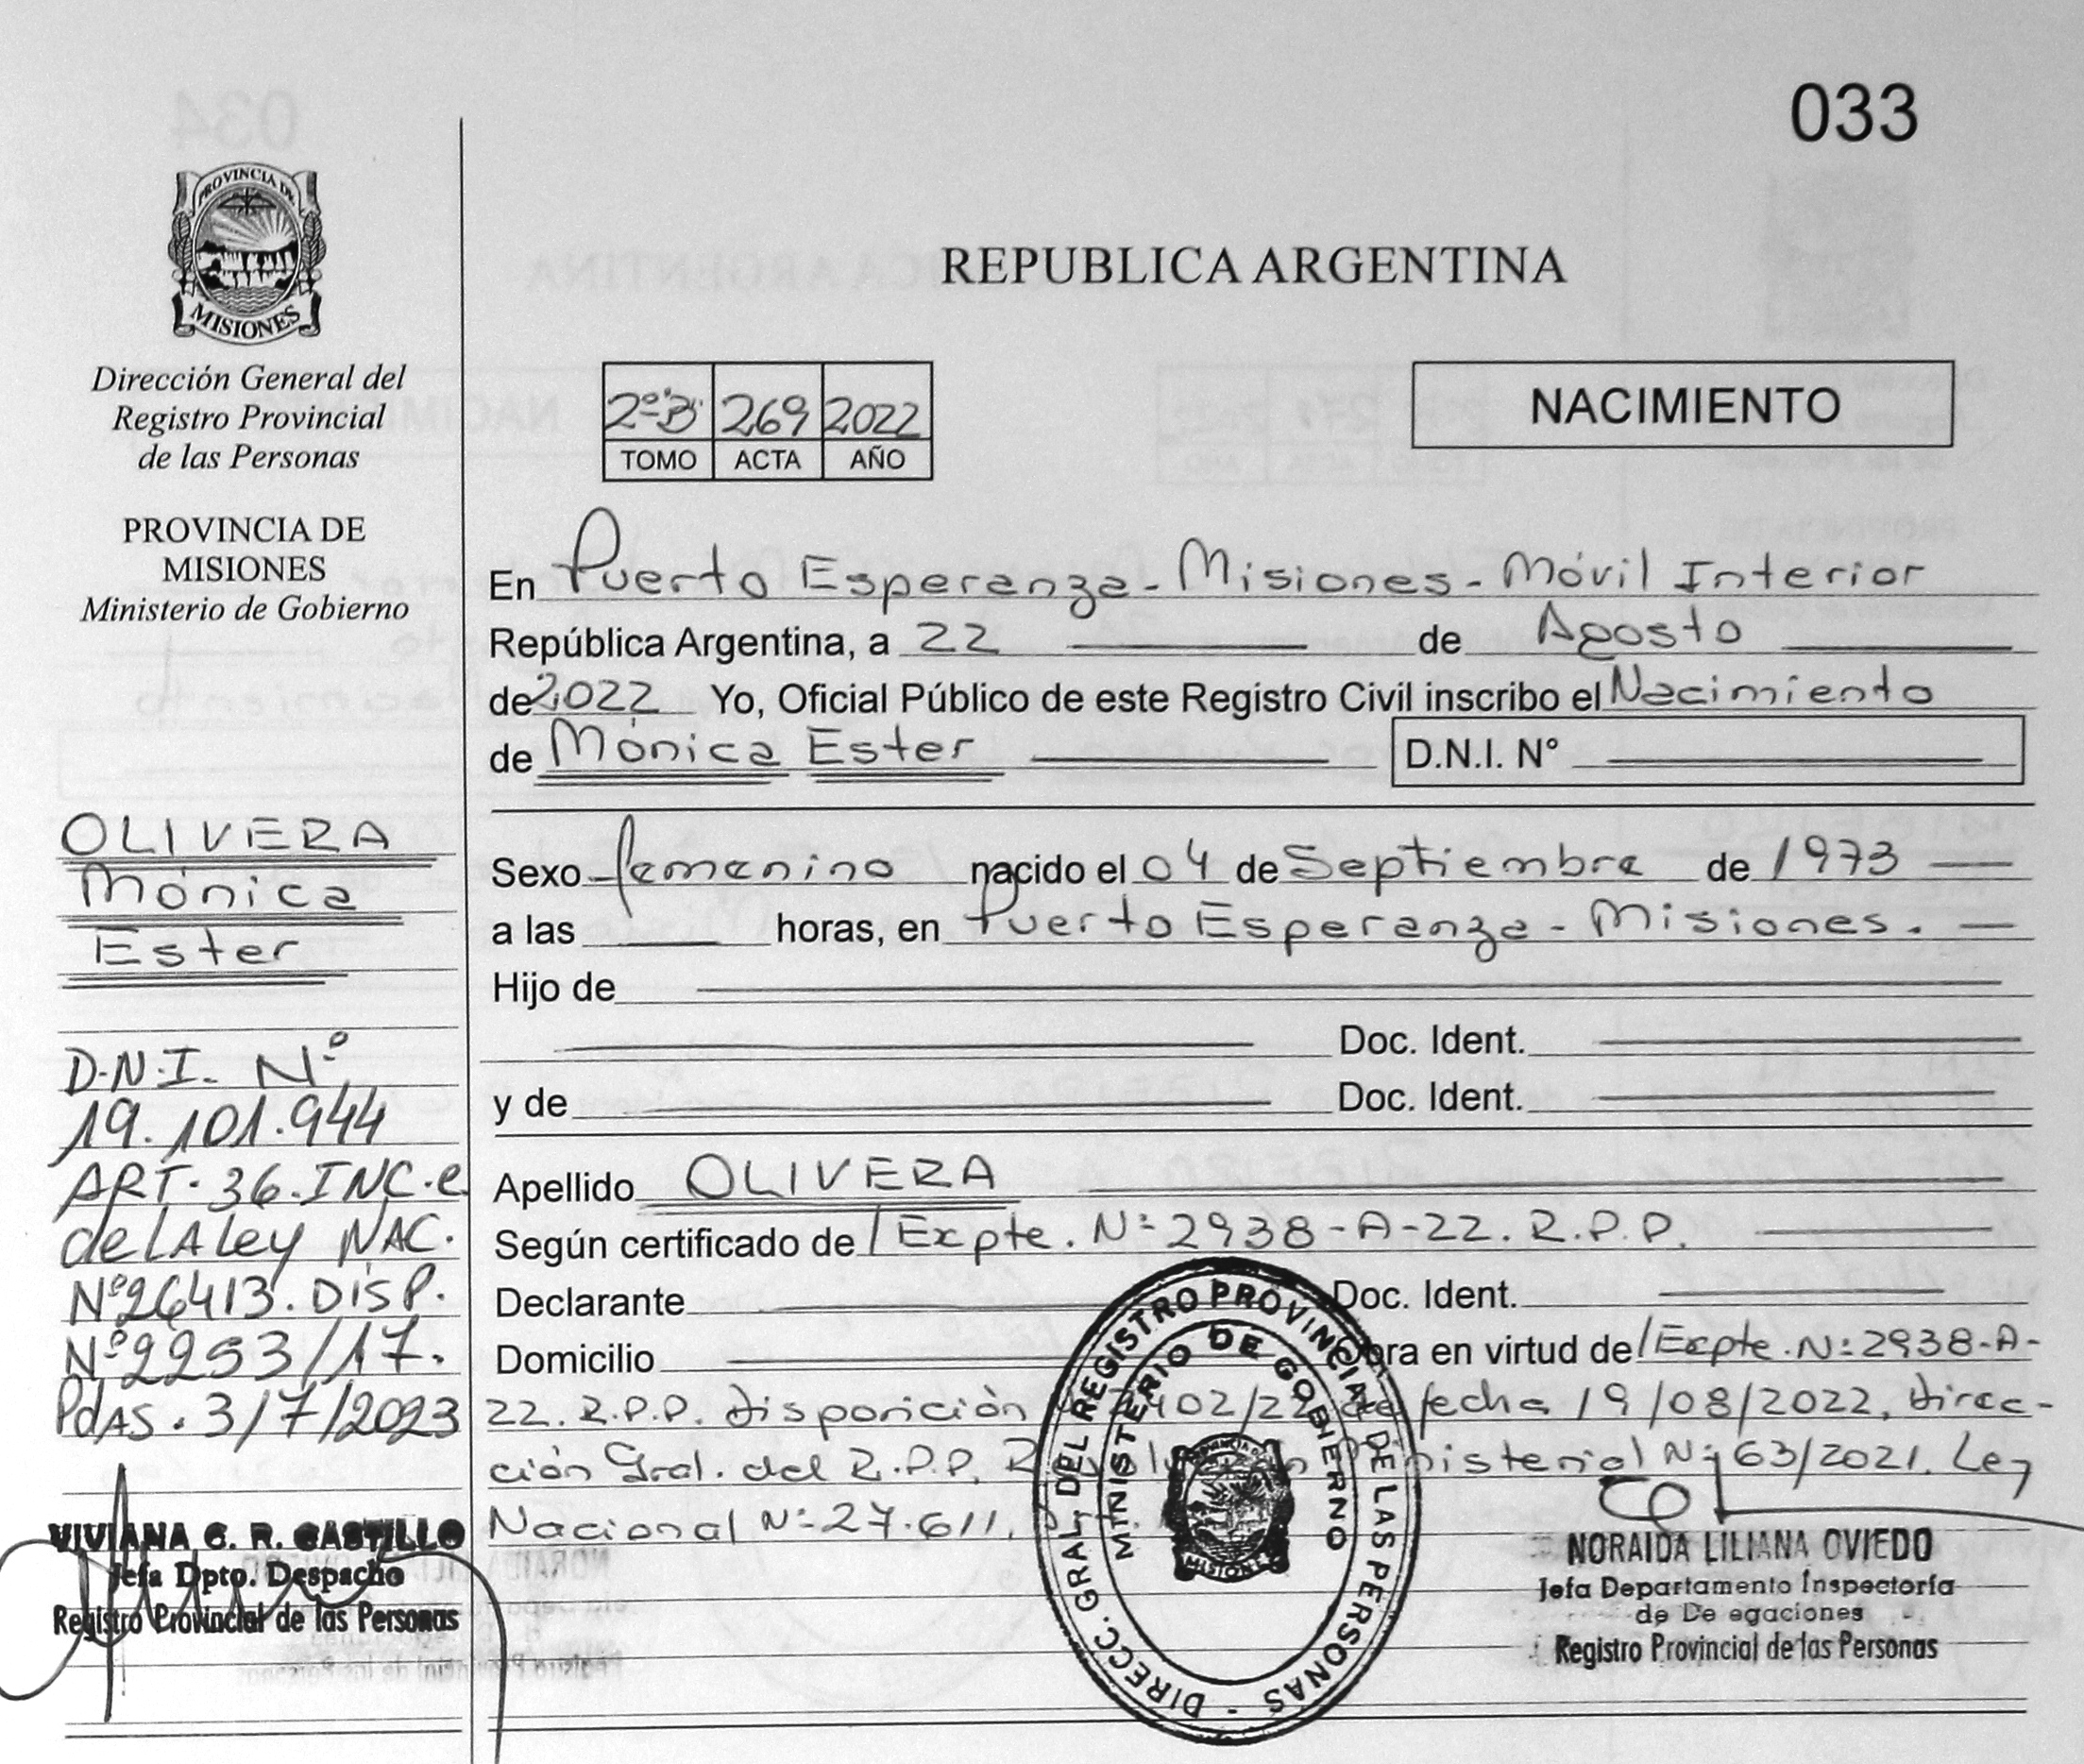 033
PROVINCIA DE
MISIONES
Dirección General del
Registro Provincial
de las Personas
PROVINCIA DE
MISIONES
Ministerio de Gobierno
OLIVERA
Mónica
Ester
D.N.I. Nº
19.101.944
ART. 36. INC. e
de LA Ley NAC.
Nº 26413. DISP.
Nº 2253/17.
PdAS. 3/7/2023
VIVIANA G. R. CASTILLO
Jefa Dpto. Despacho
Registro Provincial de las Personas
REPUBLICA ARGENTINA
2º"B" 269 2022
TOMO ACTA AÑO
NACIMIENTO
En Puerto Esperanza - Misiones - Móvil Interior
República Argentina, a 22 de Agosto
de 2022 Yo, Oficial Público de este Registro Civil inscribo el Nacimiento
de Mónica Ester D.N.I. N°
Sexo femenino nacido el 04 de Septiembre de 1973
a las horas, en Puerto Esperanza - Misiones.
Hijo de
Doc. Ident.
y de Doc. Ident.
Apellido OLIVERA
Según certificado de / Expte. Nº 2938-A-22. R.P.P.
Declarante Doc. Ident.
Domicilio Obra en virtud de / Expte. Nº 2938-A-
22. R.P.P. Disposición 2402/22 de fecha 19/08/2022, Direc-
ción Gral. del R.P.P. Resolución Ministerial Nº 63/2021. Ley
Nacional Nº 27.611.
DIRECC. GRAL. DEL REGISTRO PROVINCIAL DE LAS PERSONAS -
MINISTERIO DE GOBIERNO
MISIONES
NORAIDA LILIANA OVIEDO
Jefa Departamento Inspectoría
de De egaciones
Registro Provincial de las Personas